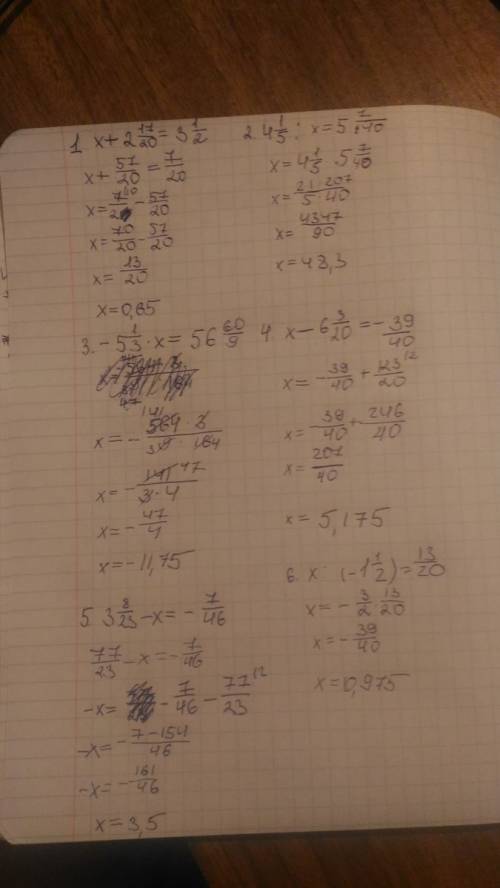 1. x + 2 17/20 = 3 1/2
x + 57/20 = 7/20
x = 7/2 - 57/20
x = 70/20 - 57/20
x = 13/20
x = 0,65
2. 4 1/5 : x = 5 7/40
x = 4 1/5 · 5 7/40
x = 21·207/5·40
x = 4347/90
x = 48,3
3. - 5 1/3 · x = 56 60/9
x = - 47/4
x = -11,75
4. x - 6 3/20 = - 39/40
x = - 39/40 + 123/20
x = - 39/40 + 246/40
x = 207/40
x = 5,175
5. 3 8/23 - x = - 7/46
77/23 - x = - 7/46
-x = - 7/46 - 77/23
-x = - 7-154/46
-x = - 161/46
x = 3,5
6. x : (-1 1/2) = 13/20
x = - 3/2 · 13/20
x = - 39/40
x = 0,975